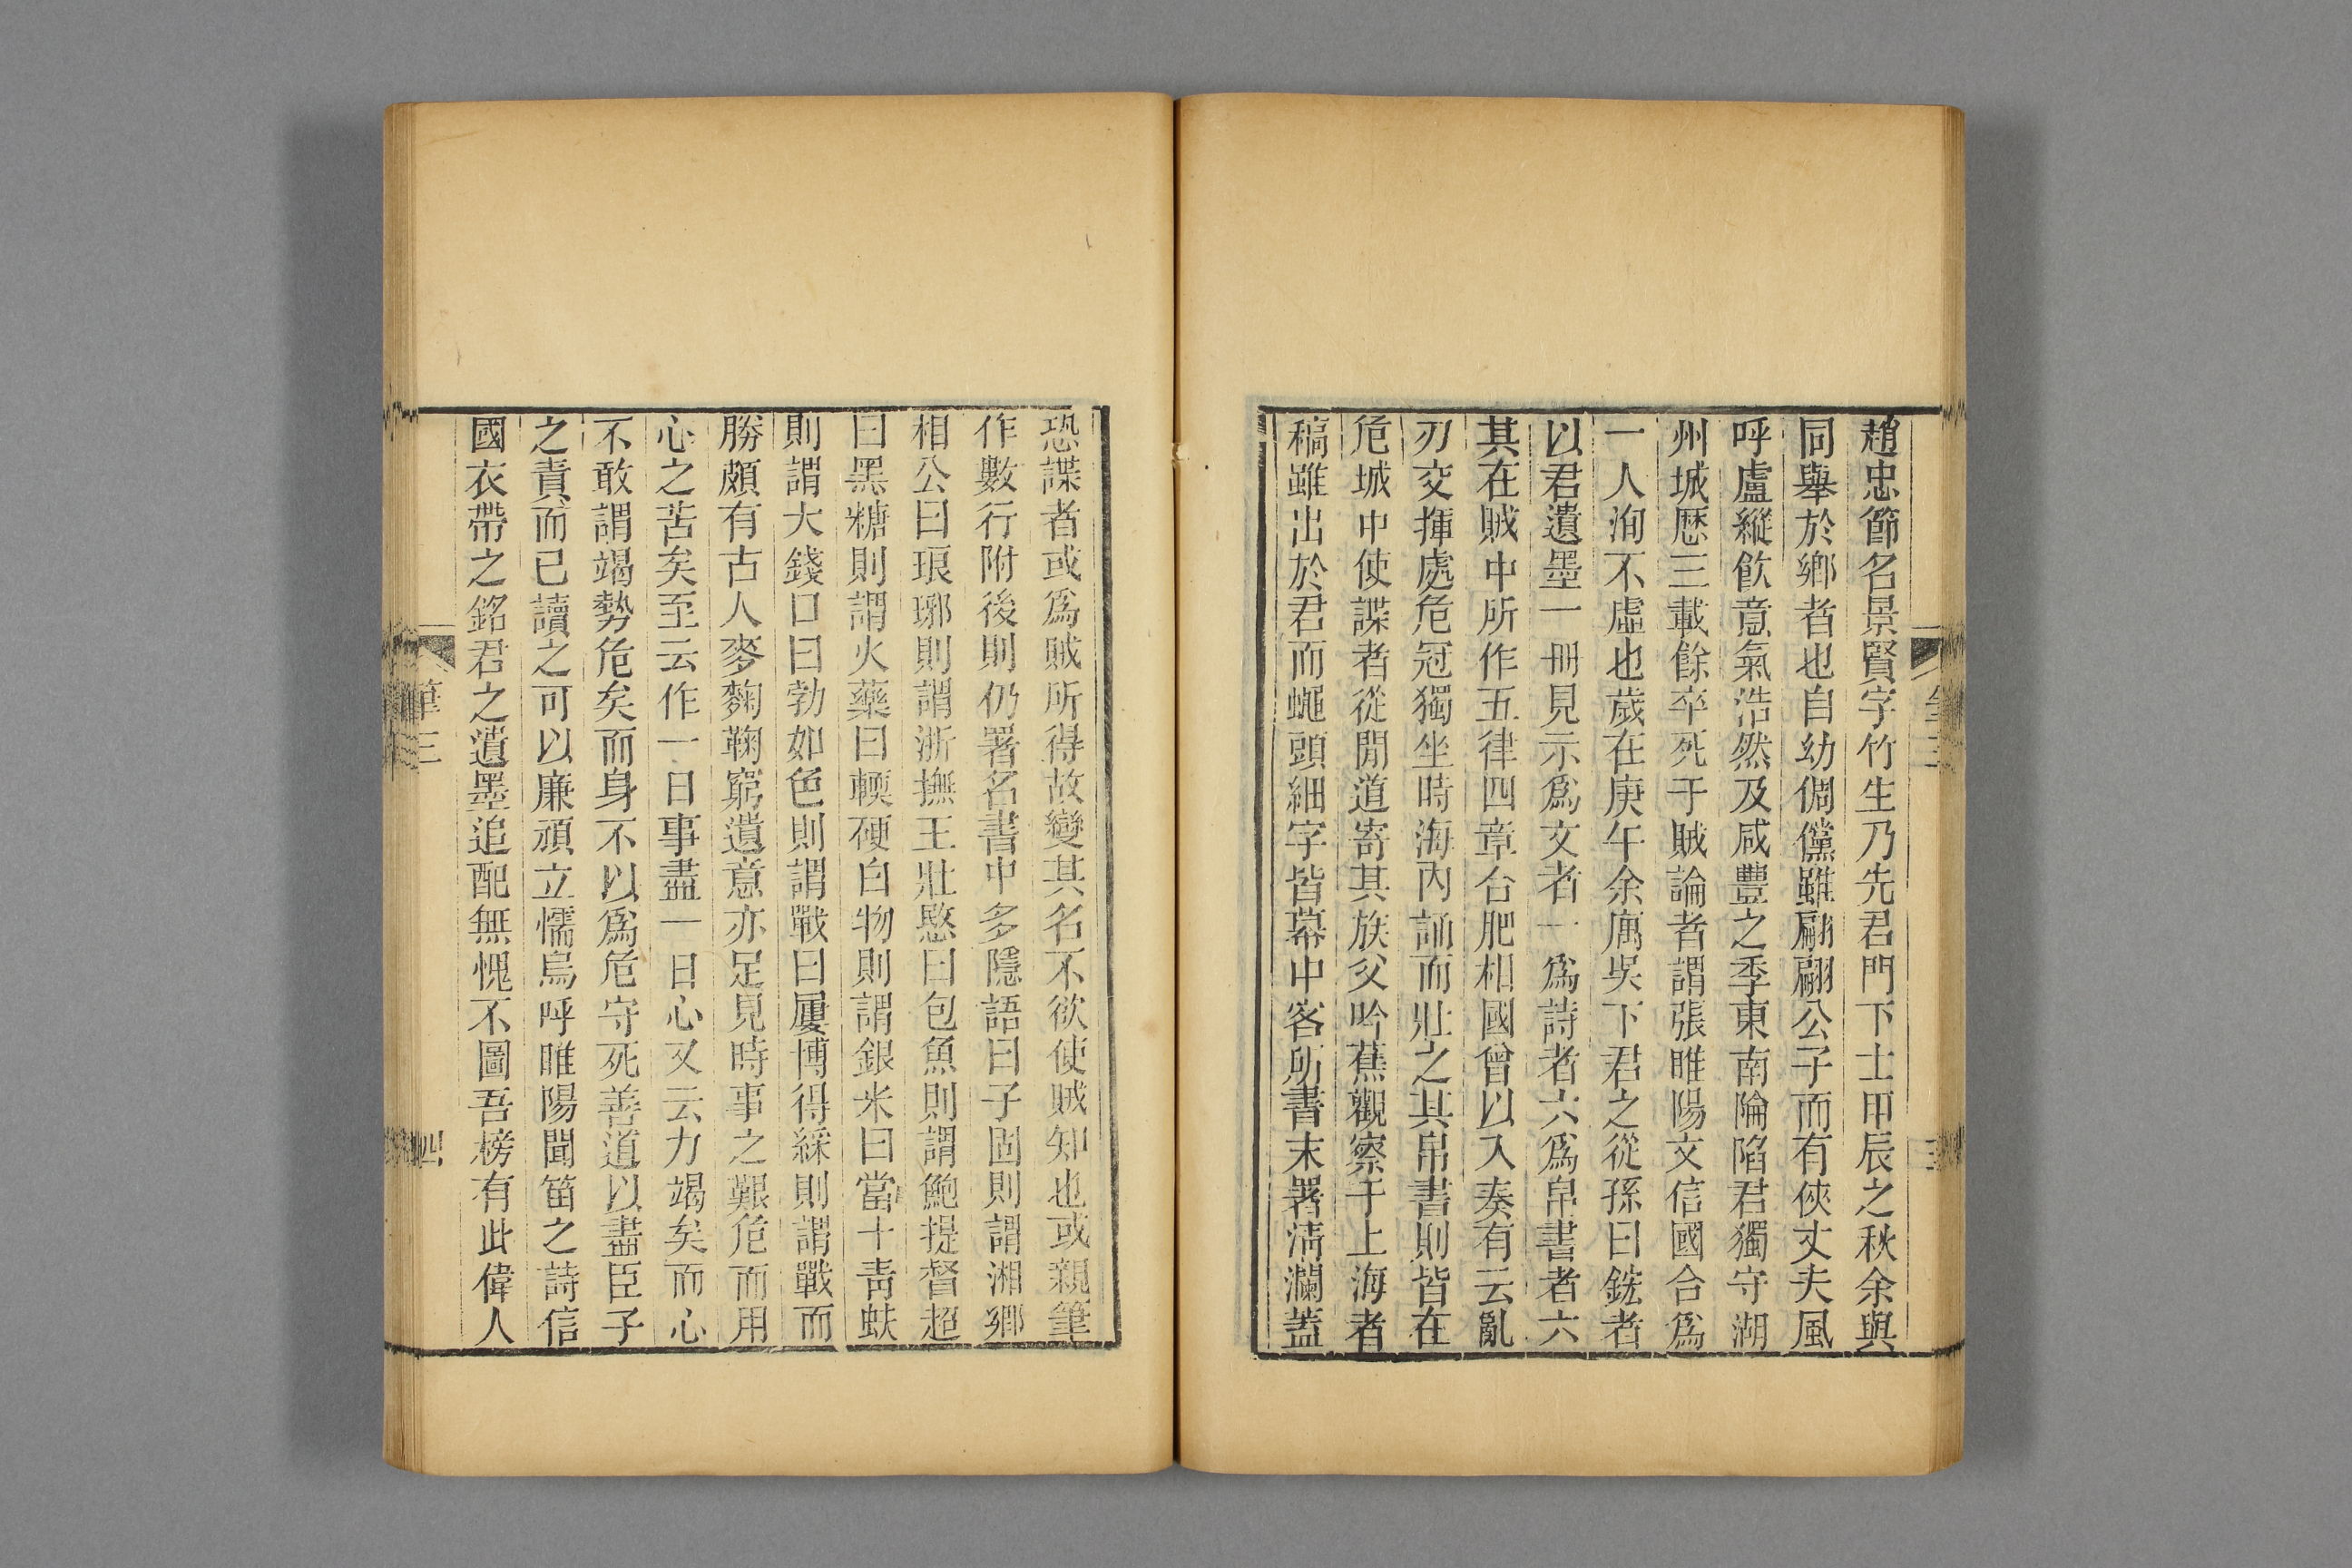 趙忠節名景賢字竹生乃先君門下士甲辰之秋余與
同舉於鄉者也自幼倜儻雖翩翩公子而有俠丈夫風
呼盧縱飲意氣浩然及咸豐之季東南陯陷君獨守湖
州城歷三載餘卒死于賊論者謂張睢陽文信國合爲
一人洵不虛也歲在庚午余寓吳下君之從孫曰鋐者
以君遺墨一冊見示爲文者一爲詩者六爲帛書者六
其在賊中所作五律四章合肥相國曾以入奏有云亂
刃交揮處危冠獨坐時海內誦而壯之其帛書則皆在
危城中使諜者從間道寄其族父吟蕉觀察于上海者
稿雖出於君而蠅頭細字皆幕中客所書末署淸瀾蓋
筆三
三
恐諜者或爲賊所得故變其名不欲使賊知也或親筆
作數行附後則仍署名書中多隱語曰子固則謂湘鄉
相公曰琅琊則謂浙撫王壯愍曰包魚則謂鮑提督超
曰黑糖則謂火藥曰輭硬白物則謂銀米曰當十靑蚨
則謂大錢口曰勃如色則謂戰曰屢博得綵則謂戰而
勝頗有古人麥麴鞠窮遺意亦足見時事之艱危而用
心之苦矣至云作一日事盡一日心又云力竭矣而心
不敢謂竭勢危矣而身不以爲危守死善道以盡臣子
之責而已讀之可以廉頑立懦烏呼睢陽聞笛之詩信
國衣帶之銘君之遺墨追配無愧不圖吾榜有此偉人
筆三
四